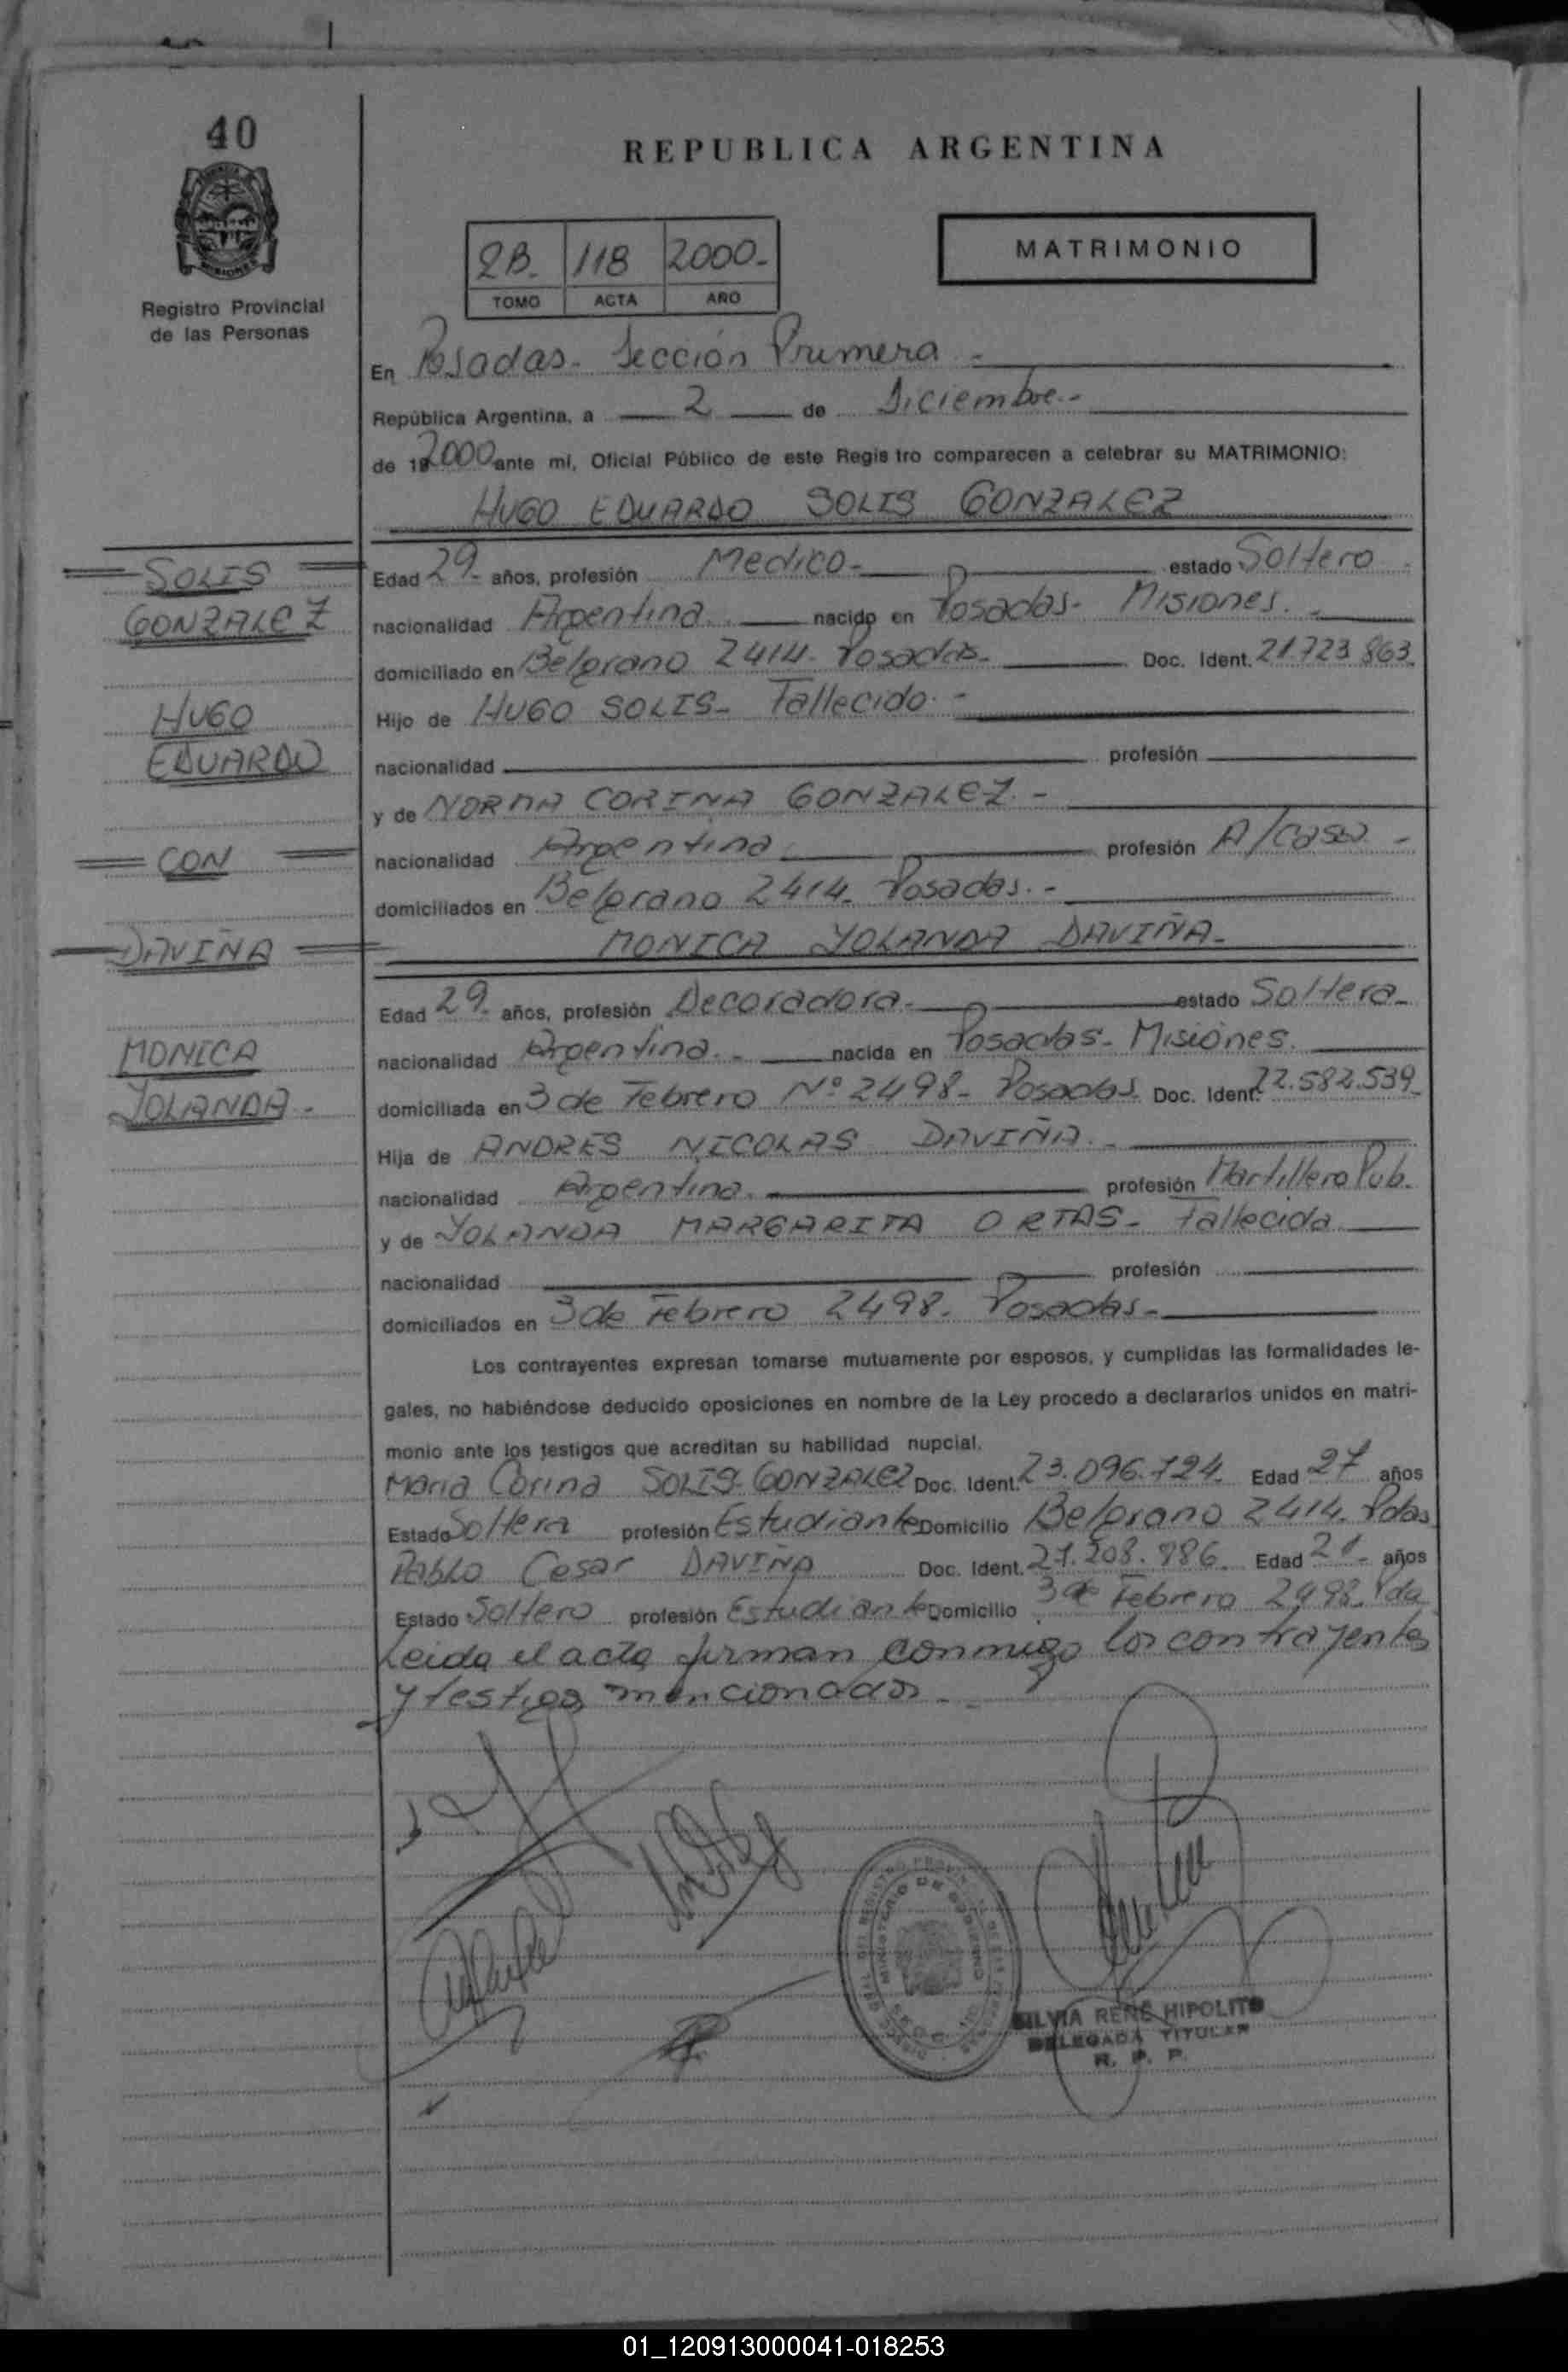 40
REPUBLICA ARGENTINA
MISIONES
Registro Provincial
de las Personas
2B. 118 2000-
TOMO ACTA AÑO
MATRIMONIO
En Posadas. Sección Primera -
República Argentina, a 2 de Diciembre.-
de 192000 ante mí, Oficial Público de este Registro comparecen a celebrar su MATRIMONIO:
HUGO EDUARDO SOLIS GONZALEZ
SOLIS
GONZALEZ
HUGO
EDUARDO
CON
DAVIÑA
MONICA
YOLANDA.-
Edad 29- años, profesión Medico- estado Soltero
nacionalidad Argentina. nacido en Posadas- Misiones.-
domiciliado en Belgrano 2414- Posadas- Doc. Ident. 21.723.863
Hijo de HUGO SOLIS- Fallecido.-
nacionalidad profesión
y de NORMA CORINA GONZALEZ.-
nacionalidad Argentina profesión A/casa -
domiciliados en Belgrano 2414- Posadas.-
MONICA YOLANDA DAVIÑA-
Edad 29- años, profesión Decoradora- estado Soltera-
nacionalidad Argentina.- nacida en Posadas- Misiones.
domiciliada en 3 de Febrero Nº 2498- Posadas Doc. Ident. 22.582.539
Hija de ANDRES NICOLAS DAVIÑA.-
nacionalidad Argentina. profesión Martillero Pub.
y de YOLANDA MARGARITA ORTAS- Fallecida
nacionalidad profesión
domiciliados en 3 de Febrero 2498- Posadas-
Los contrayentes expresan tomarse mutuamente por esposos, y cumplidas las formalidades le-
gales, no habiéndose deducido oposiciones en nombre de la Ley procedo a declararlos unidos en matri-
monio ante los testigos que acreditan su habilidad nupcial.
Maria Corina SOLIS GONZALEZ Doc. Ident. 23.096.724. Edad 27 años
Estado Soltera profesión Estudiante Domicilio Belgrano 2414. Pdas
PABLO Cesar DAVIÑA Doc. Ident. 27.208.986. Edad 21- años
Estado Soltero profesión Estudiante Domicilio 3 de Febrero 2498. Pda
Leida el acta firman conmigo los contrayentes
y testigos mencionados.-
MINISTERIO DE GOBIERNO
SILVIA RENÉ HIPOLITO
DELEGADA TITULAR
R. P. P.
01_120913000041-018253